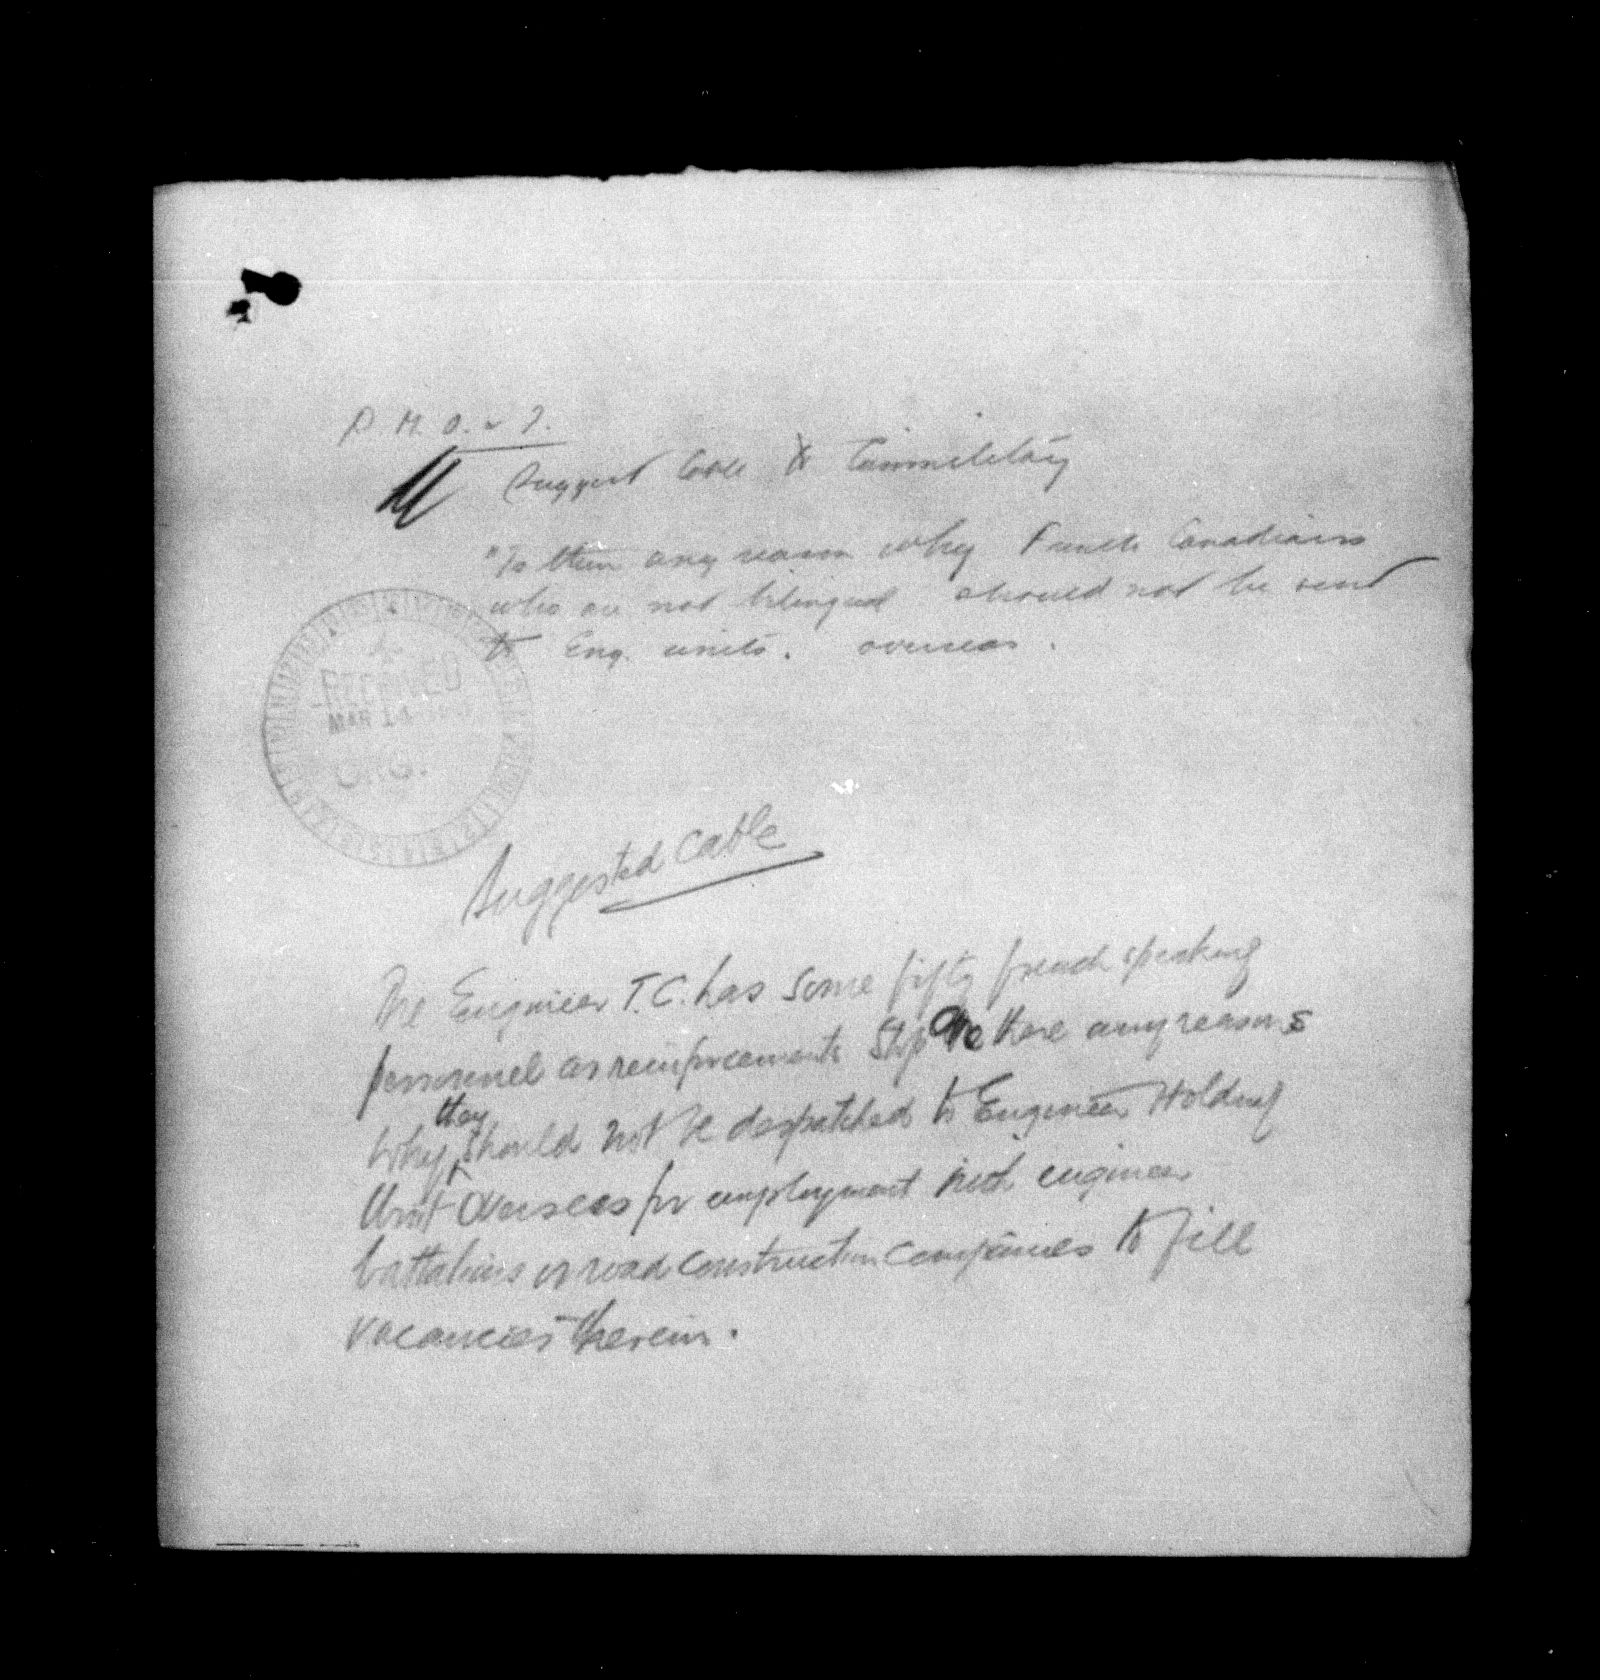 D. M. O. & I.
Suggest Cable to Canmilitary
"Is there any reason why French Canadians
who are not bilingual should not be sent
to Eng. units. overseas.
RECEIVED
MAR 14
ORG.
Suggested Cable
The Engineer T.C. has some fifty french speaking
personnel as reinforcements Stop Are there any reasons
they
why should not be despatched to Engineer Holding
Unit Overseas for employment with engineer
battalions or road construction companies to fill
vacancies therein.